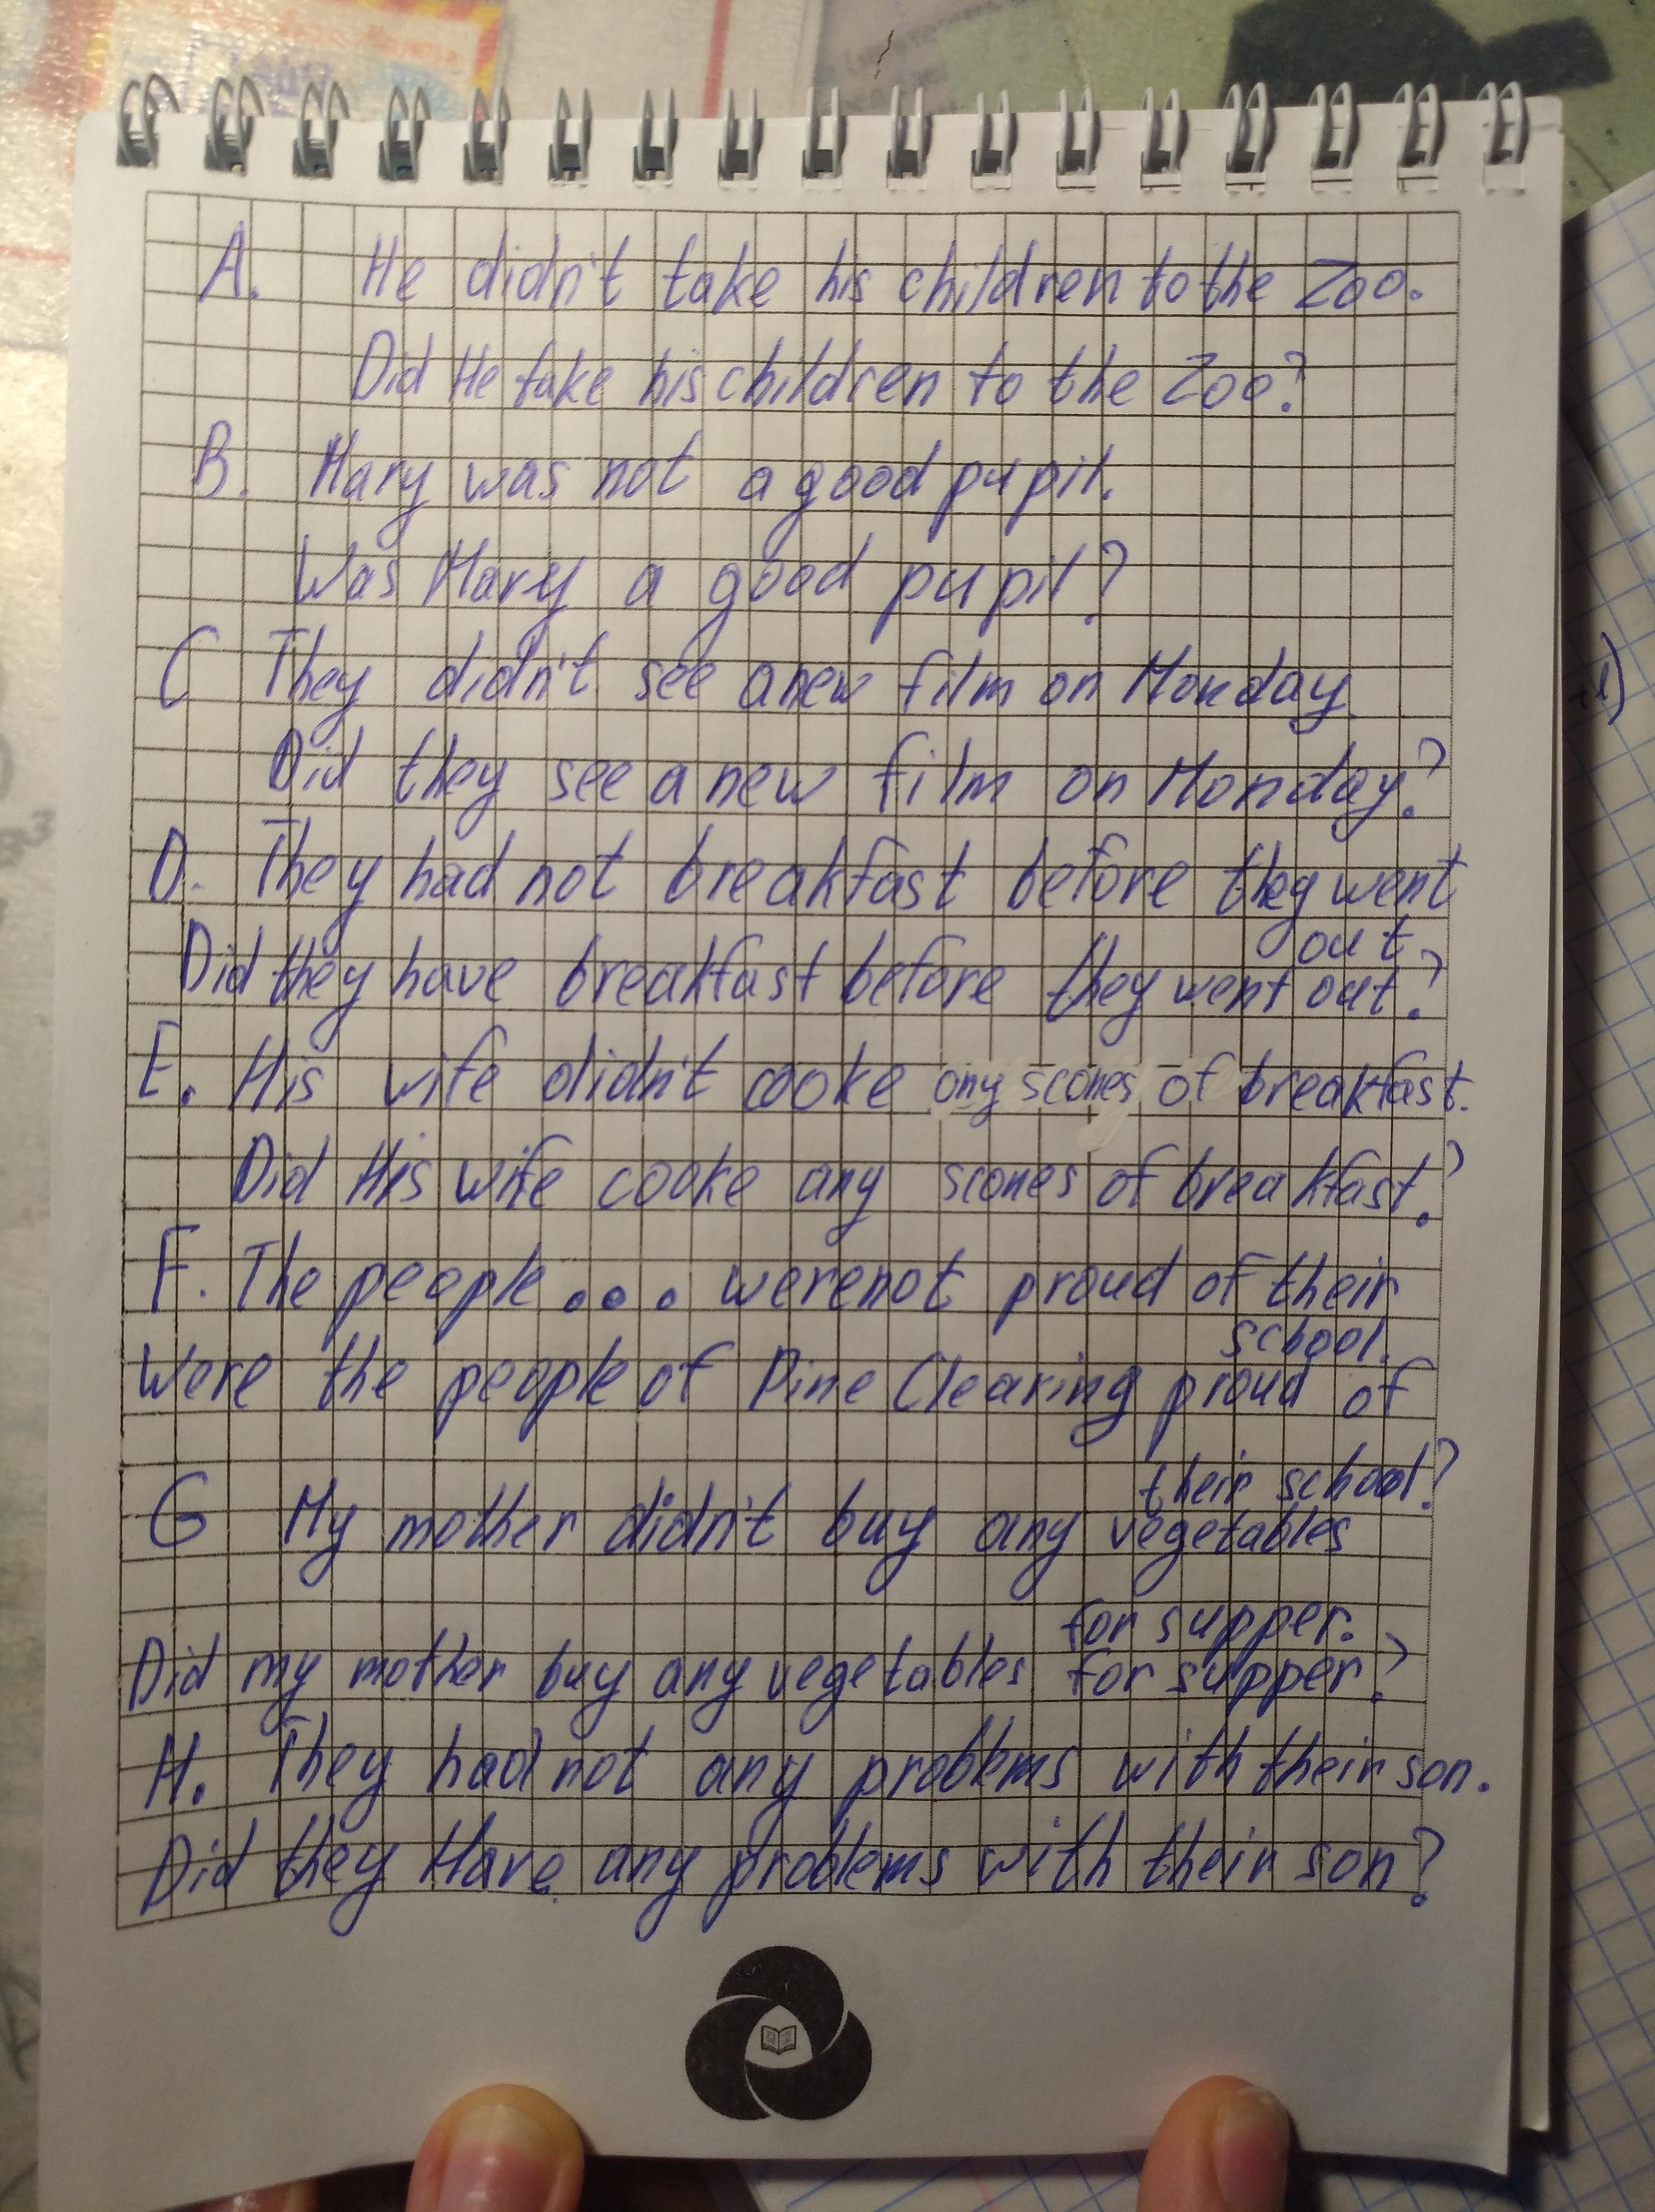 A. He didn't take his children to the Zoo.
Did He take his children to the Zoo?
B. Mary was not a good pupil.
Was Mary a good pupil?
C They didn't see a new film on Monday.
Did they see a new film on Monday?
D. They had not breakfast before they went
out
Did they have breakfast before they went out?
E. His wife didn't cooke any scones of breakfast.
Did His wife cooke any scones of breakfast?
F. The people... were not proud of their
school.
Were the people of Pine Clearing proud of
their school?
G My mother didn't buy any vegetables
for supper.
Did my mother buy any vegetables for supper?
H. They had not any problems with their son.
Did they Have any problems with their son?